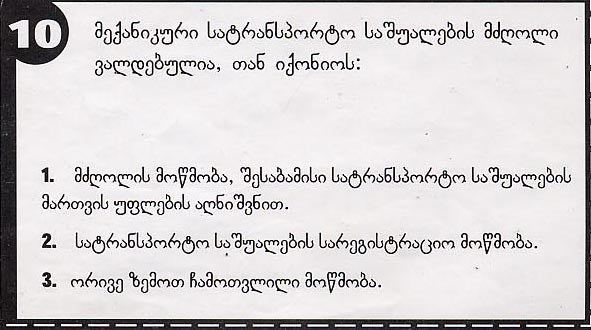 10
მექანიკური სატრანსპორტო საშუალების მძღოლი
ვალდებულია, თან იქონიოს:
1. მძღოლის მოწმობა, შესაბამისი სატრანსპორტო საშუალების
მართვის უფლების აღნიშვნით.
2. სატრანსპორტო საშუალების სარეგისტრაციო მოწმობა.
3. ორივე ზემოთ ჩამოთვლილი მოწმობა.